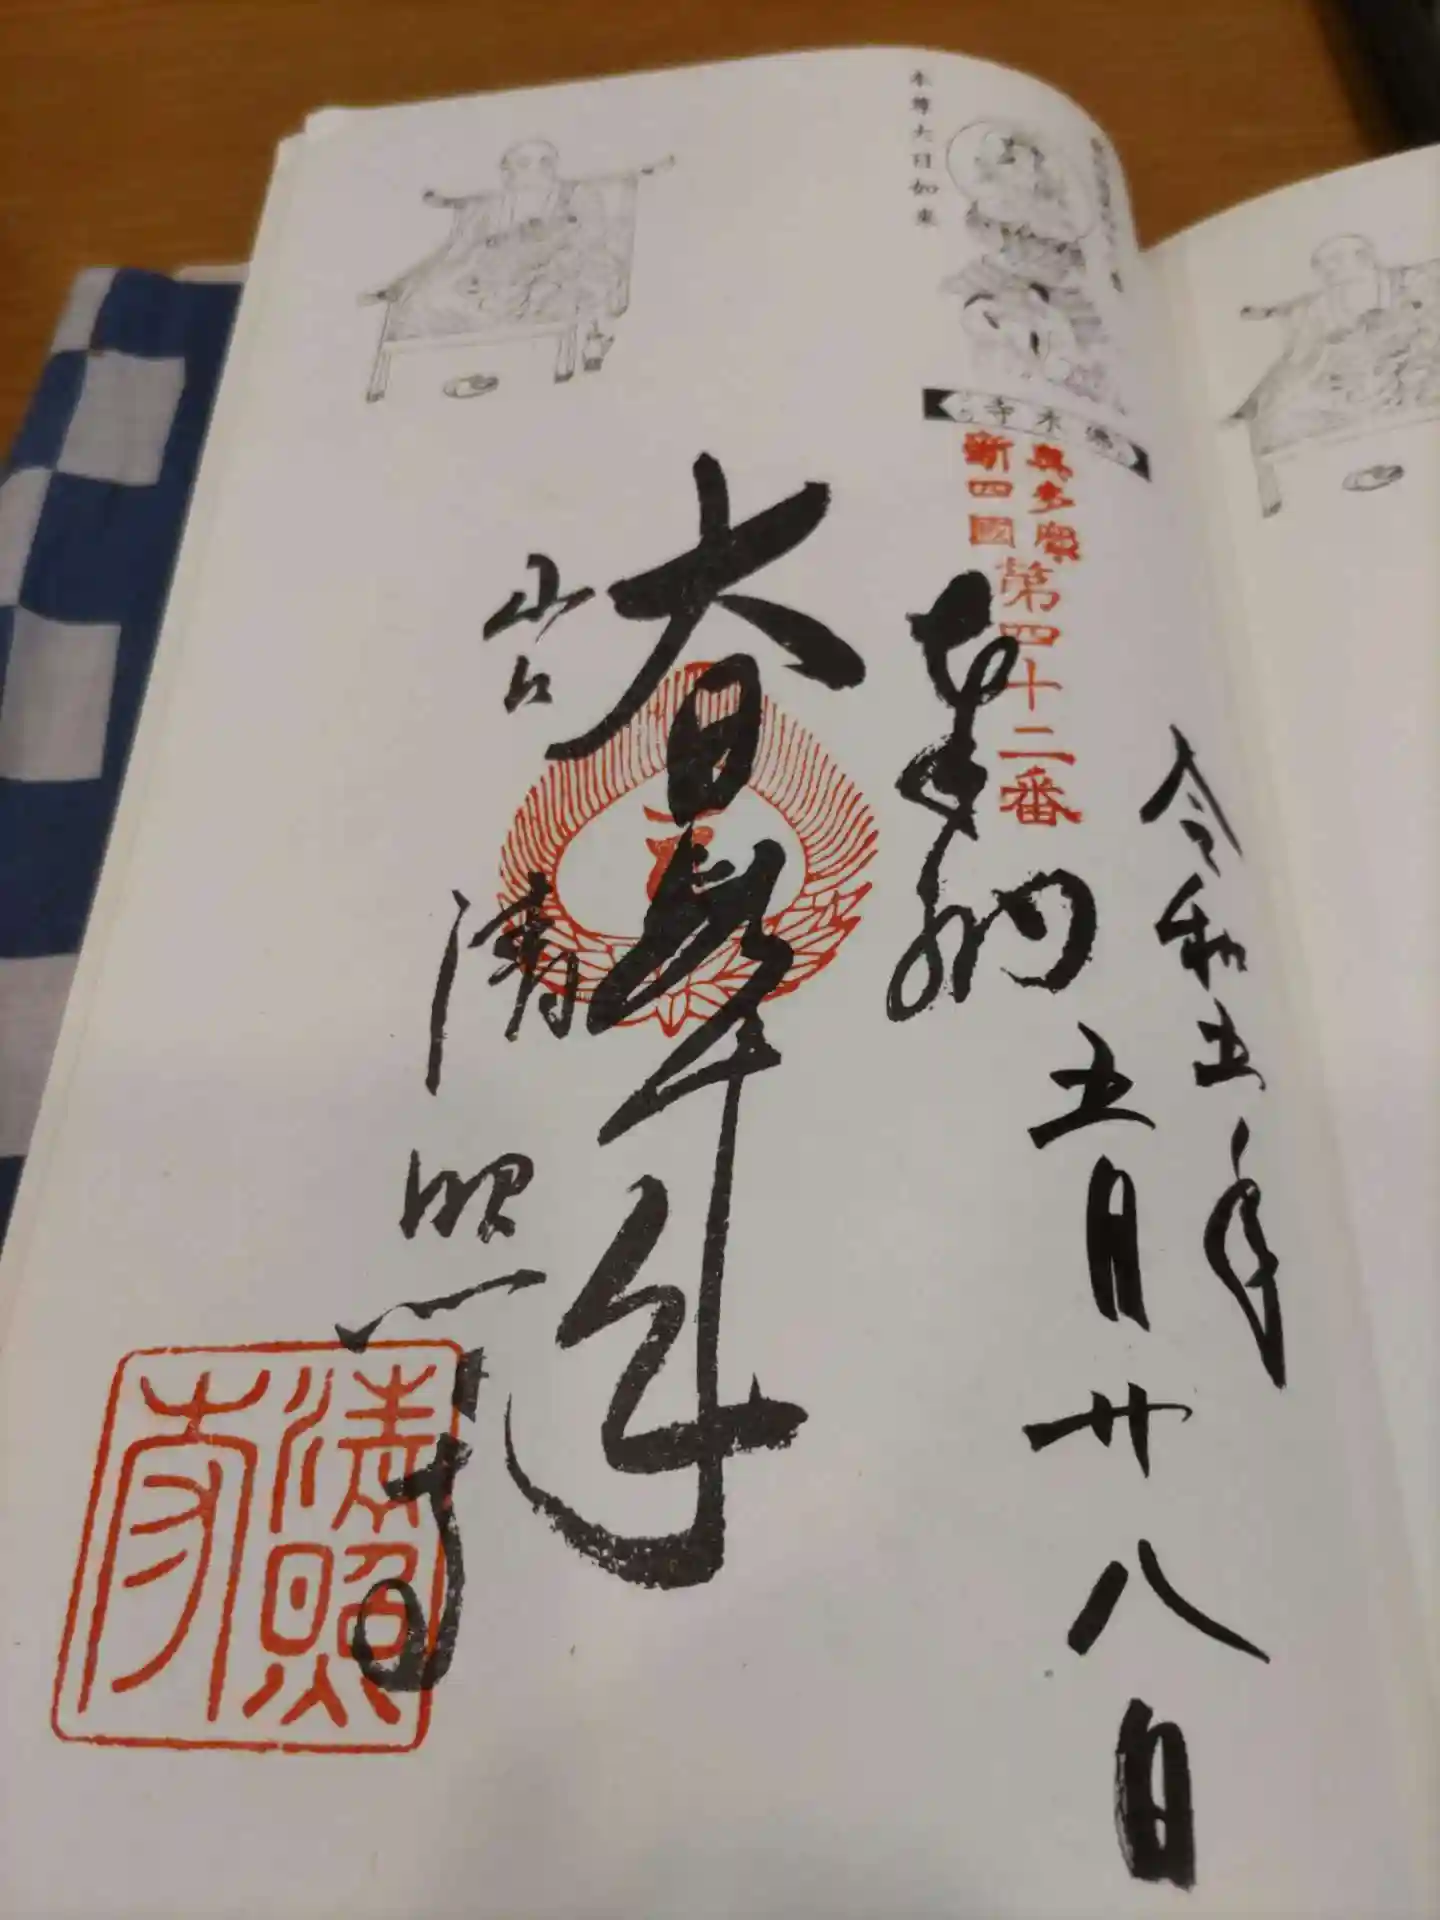 令和五年
五月廿八日
奥多摩
新四國
第四十二番
奉納
本尊大日如来
佛木寺
大日如来
岩
清照寺
清照
寺